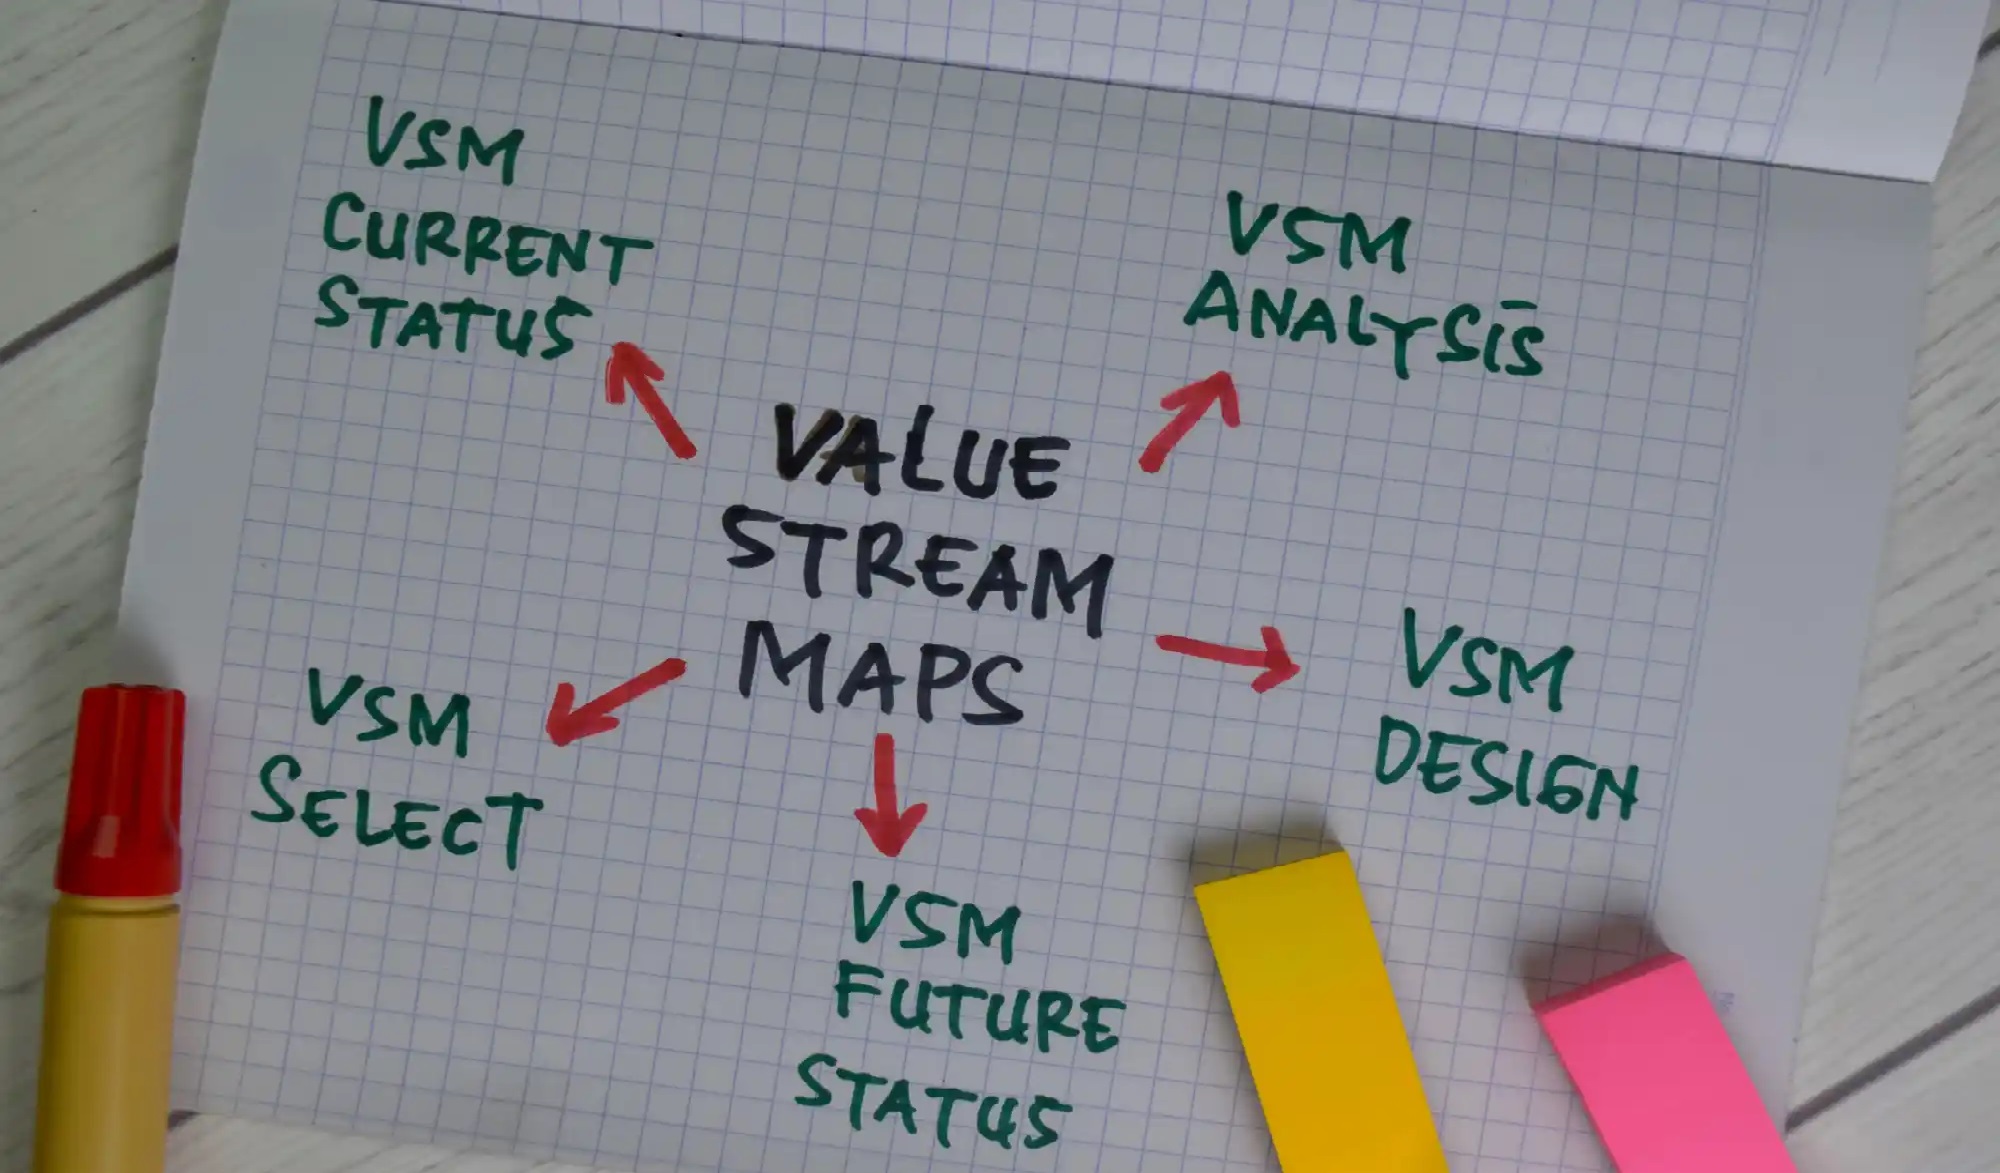 VSM
CURRENT
STATUS
VSM
ANALYSIS
VALUE
STREAM
MAPS
VSM
SELECT
VSM
DESIGN
VSM
FUTURE
STATUS